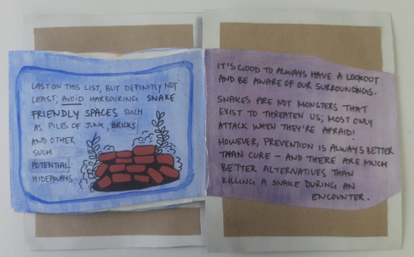 LAST ON THIS LIST, BUT DEFINITLY NOT
LEAST, AVOID HARBOURING SNAKE
FRIENDLY SPACES SUCH
AS PILES OF JUNK, BRICKS
AND OTHER
SUCH
POTENTIAL
HIDEAWAYS.
IT'S GOOD TO ALWAYS HAVE A LOOKOUT
AND BE AWARE OF OUR SURROUNDINGS.
SNAKES ARE NOT MONSTERS THAT
EXIST TO THREATEN US, MOST ONLY
ATTACK WHEN THEY'RE AFRAID!
HOWEVER, PREVENTION IS ALWAYS BETTER
THAN CURE – AND THERE ARE MUCH
BETTER ALTERNATIVES THAN
KILLING A SNAKE DURING AN
ENCOUNTER.